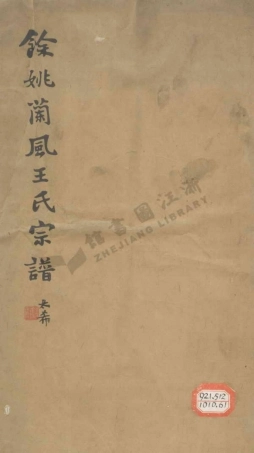 餘姚蘭風王氏宗譜
太希
浙江圖書館
ZHEJIANG LIBRARY
921.512
1010.61